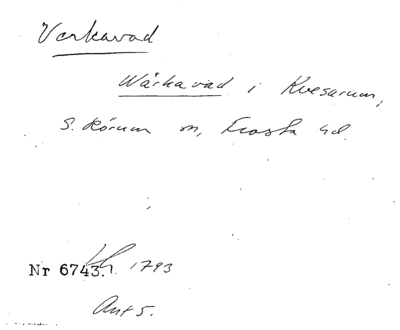 Verkavad
Wärkavad i Kvesarum,
S. Rörum sn, Frosta hd.
Nr 6743. 1793
Ant 5.